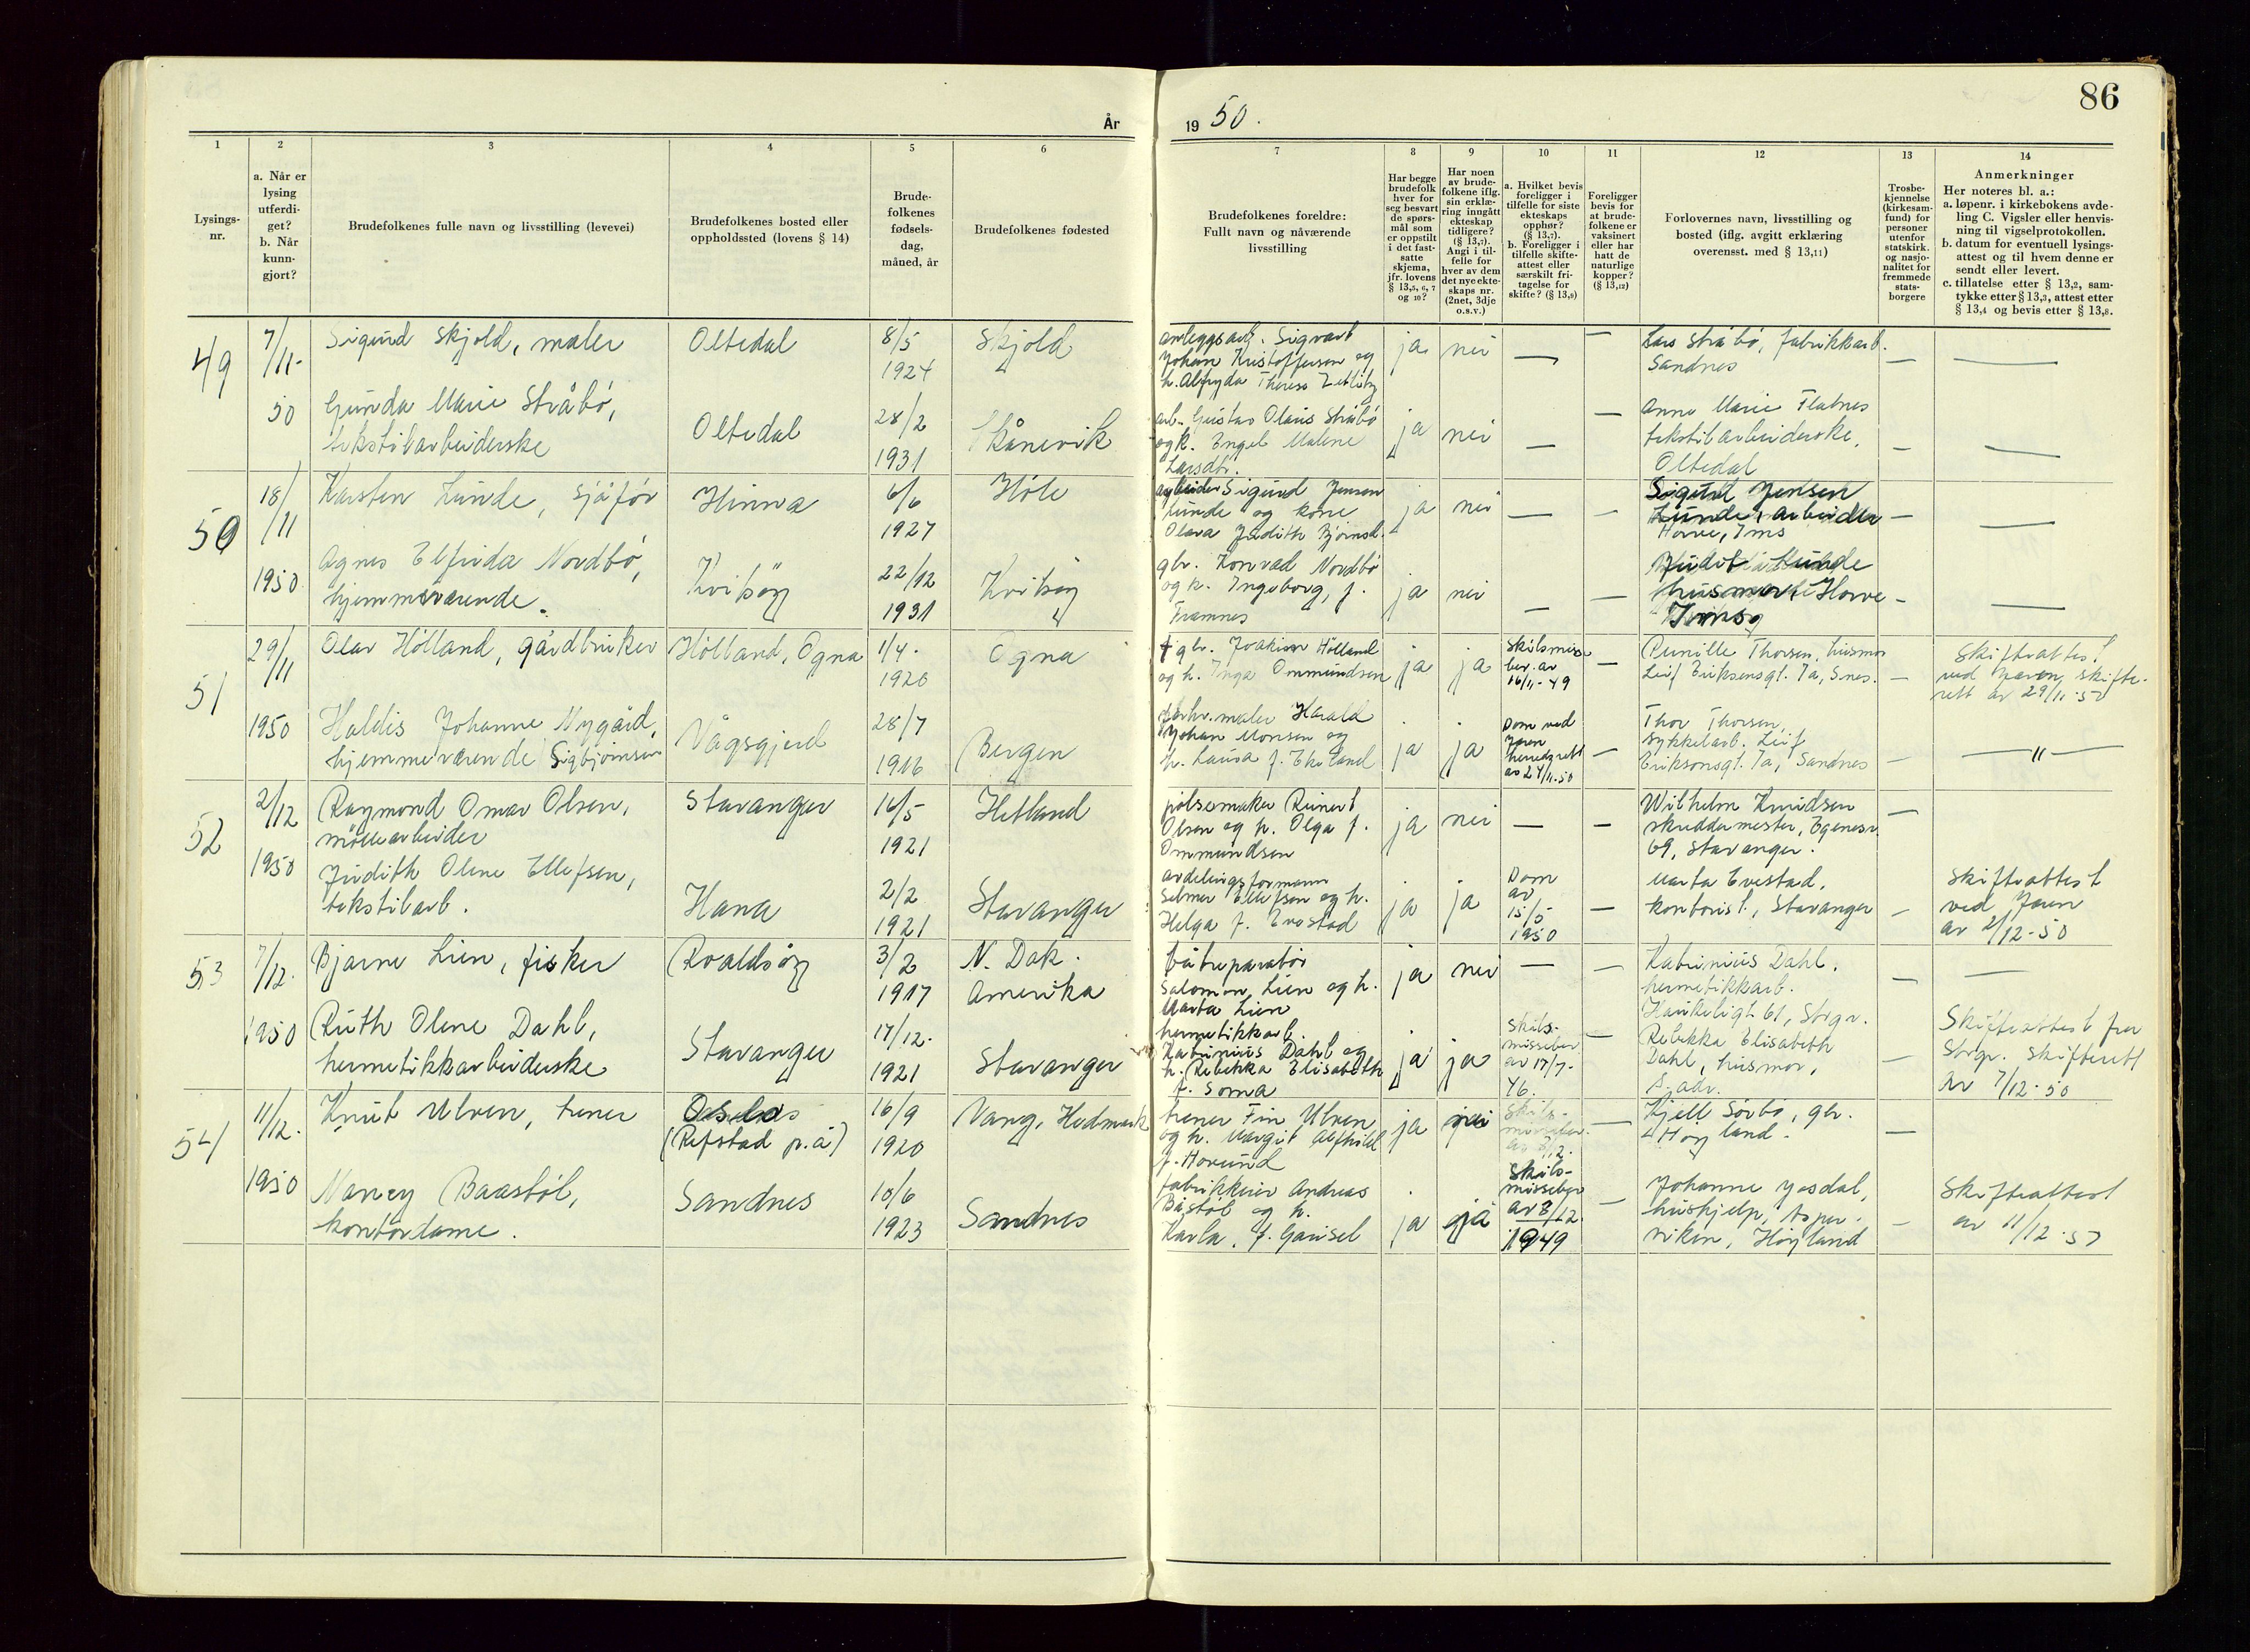 86
År
19 50.
1
2
3
4
5
6
7
8
9
10
11
12
13
14
Lysings-
nr.
a. Når er
lysing
utferdi-
get?
b. Når
kunn-
gjort?
Brudefolkenes fulle navn og livsstilling (levevei)
Brudefolkenes bosted eller
oppholdssted (lovens § 14)
Brude-
folkenes
fødsels-
dag,
måned, år
Brudefolkenes fødested
Brudefolkenes foreldre:
Fullt navn og nåværende
livsstilling
Har begge
brudefolk
hver for
seg besvart
de spørs-
mål som
er oppstilt
i det fast-
satte
skjema,
jfr. lovens
§ 13,5, 6, 7
og 10?
Har noen
av brude-
folkene iflg.
sin erklæ-
ring inngått
ekteskap
tidligere?
(§ 13,7).
Angi i til-
felle for
hver av dem
det nye ekte-
skaps nr.
(2net, 3dje
o.s.v.)
a. Hvilket bevis
foreligger i
tilfelle for siste
ekteskaps
opphør?
(§ 13,7).
b. Foreligger i
tilfelle skifte-
attest eller
særskilt fri-
tagelse for
skifte? (§ 13,9)
Foreligger
bevis for
at brude-
folkene er
vaksinert
eller har
hatt de
naturlige
kopper?
(§ 13,12)
Forlovernes navn, livsstilling og
bosted (iflg. avgitt erklæring
overensst. med § 13,11)
Trosbe-
kjennelse
(kirkesam-
fund) for
personer
utenfor
statskirk.
og nasjo-
nalitet for
fremmede
stats-
borgere
Anmerkninger
Her noteres bl. a.:
a. løpenr. i kirkebokens avde-
ling C. Vigsler eller henvis-
ning til vigselprotokollen.
b. datum for eventuell lysings-
attest og til hvem denne er
sendt eller levert.
c. tillatelse etter § 13,2, sam-
tykke etter § 13,3, attest etter
§ 13,4 og bevis etter § 13,8.
49
7/11-
50
Sigurd Skjold, maler
Oltedal
8/5
1924
Skjold
anleggsarb. Sigvart
Johan Kristoffersen og
h. Alfryda Therese Zetlitz
ja
nei
—
—
Lars Stråbö, fabrikkarb.
Sandnes
—
—
Gunda Marie Stråbö,
tekstilarbeiderske
Oltedal
28/2
1931
Skånevik
arb. Gustav Olaus Stråbö
og k. Engel Malene
Larsdtr.
ja
nei
—
—
Anna Marie Flatnes
tekstilarbeiderske,
Oltedal
—
—
50
18/11
1950
Karsten Lunde, sjåför
Hinna
6/6
1927
Höle
arbeider Sigurd Jensen
Lunde og kone
Olava Judith Björnsd.
ja
nei
—
—
Sigurd Jensen
Lunde, arbeider
Horve, Ims
—
—
Agnes Elfrida Nordbö,
hjemmeværende.
Kvitsöy
22/12
1931
Kvitsöy
gbr. Konrad Nordbö
og k. Ingeborg, f.
Framnes
ja
nei
—
—
Judit Lunde
husmor, Horve
—
—
51
29/11
1950
Olav Hölland, gårdbruker
Hölland, Ogna
1/4.
1920
Ogna
† gbr. Joakim Hölland
og h. Inga Ommundsen
ja
ja
Skilsmisse
bev. av
16/11-49
—
Pernille Thorsen, husmor
Leif Eriksonsgt. 7a, Snes.
—
Skifteattest
ved Jæren skifte-
rett av 29/11.50
Haldis Johanne Nygård,
hjemmeværende Sigbjörnsen
Vågsgjerd
28/7
1916
Bergen
forhv. maler Harald
Johan Monsen og
h. Laura f. Ekeland
ja
ja
Dom ved
Jæren
herredsrett
av 24/11.50
—
Thor Thorsen
sykkelarb. Leif
Eriksonsgt. 7a, Sandnes
—
— " —
52
2/12
1950
Raymond Omar Olsen,
möllearbeider
Stavanger
16/5
1921
Hetland
pölsemaker Reinert
Olsen og h. Olga f.
Ommundsen
ja
nei
—
—
Wilhelm Knudsen
skreddermester, Egenesv.
69, Stavanger.
—
Judith Olene Ellefsen,
tekstilarb.
Hana
2/2
1921
Stavanger
avdelingsformann
Selmer Ellefsen og h.
Helga f. Evestad
ja
ja
Dom
av
15/5
1950
—
Marta Evestad,
kontorist, Stavanger
—
Skifteattest
ved Jæren
av 2/12-50
53
7/12.
1950
Bjarne Lien, fisker
Roaldsöy
3/2
1917
N. Dak.
Amerika
båtreparatör
Salomon Lien og h.
Marta Lien
ja
nei
—
—
Katrinius Dahl.
hermetikkarb.
Haukeligt. 61, Stvgr.
—
—
Ruth Olene Dahl,
hermetikkarbeiderske
Stavanger
17/12.
1921
Stavanger
hermetikkarb.
Katrinius Dahl og
h. Rebekka Elisabeth
f. Soma
ja
ja
Skils-
missebev.
av 17/7-
46.
—
Rebekka Elisabeth
Dahl, husmor,
s. adr.
—
Skifteattest fra
Stvgr. skifterett
av 7/12-50
54
11/12.
1950
Knut Ulven, trener
Oslo
(Refstad p.å)
16/9
1920
Vang, Hedmark
trener Fin Ulven
og h. Margit Alfhild
f. Hovind
ja
nei
—
Kjell Sörbö, gbr.
Höyland.
—
Nancy Baastöl,
kontordame.
Sandnes
10/6
1923
Sandnes
fabrikkeier Andreas
Båstöl og h.
Karla, f. Gausel
ja
ja
Skils-
missebev
av 8/12.
1949
—
Johanne Jesdal,
hushjelp, Asper-
viken, Höyland
—
Skifteattest
av 11/12.50